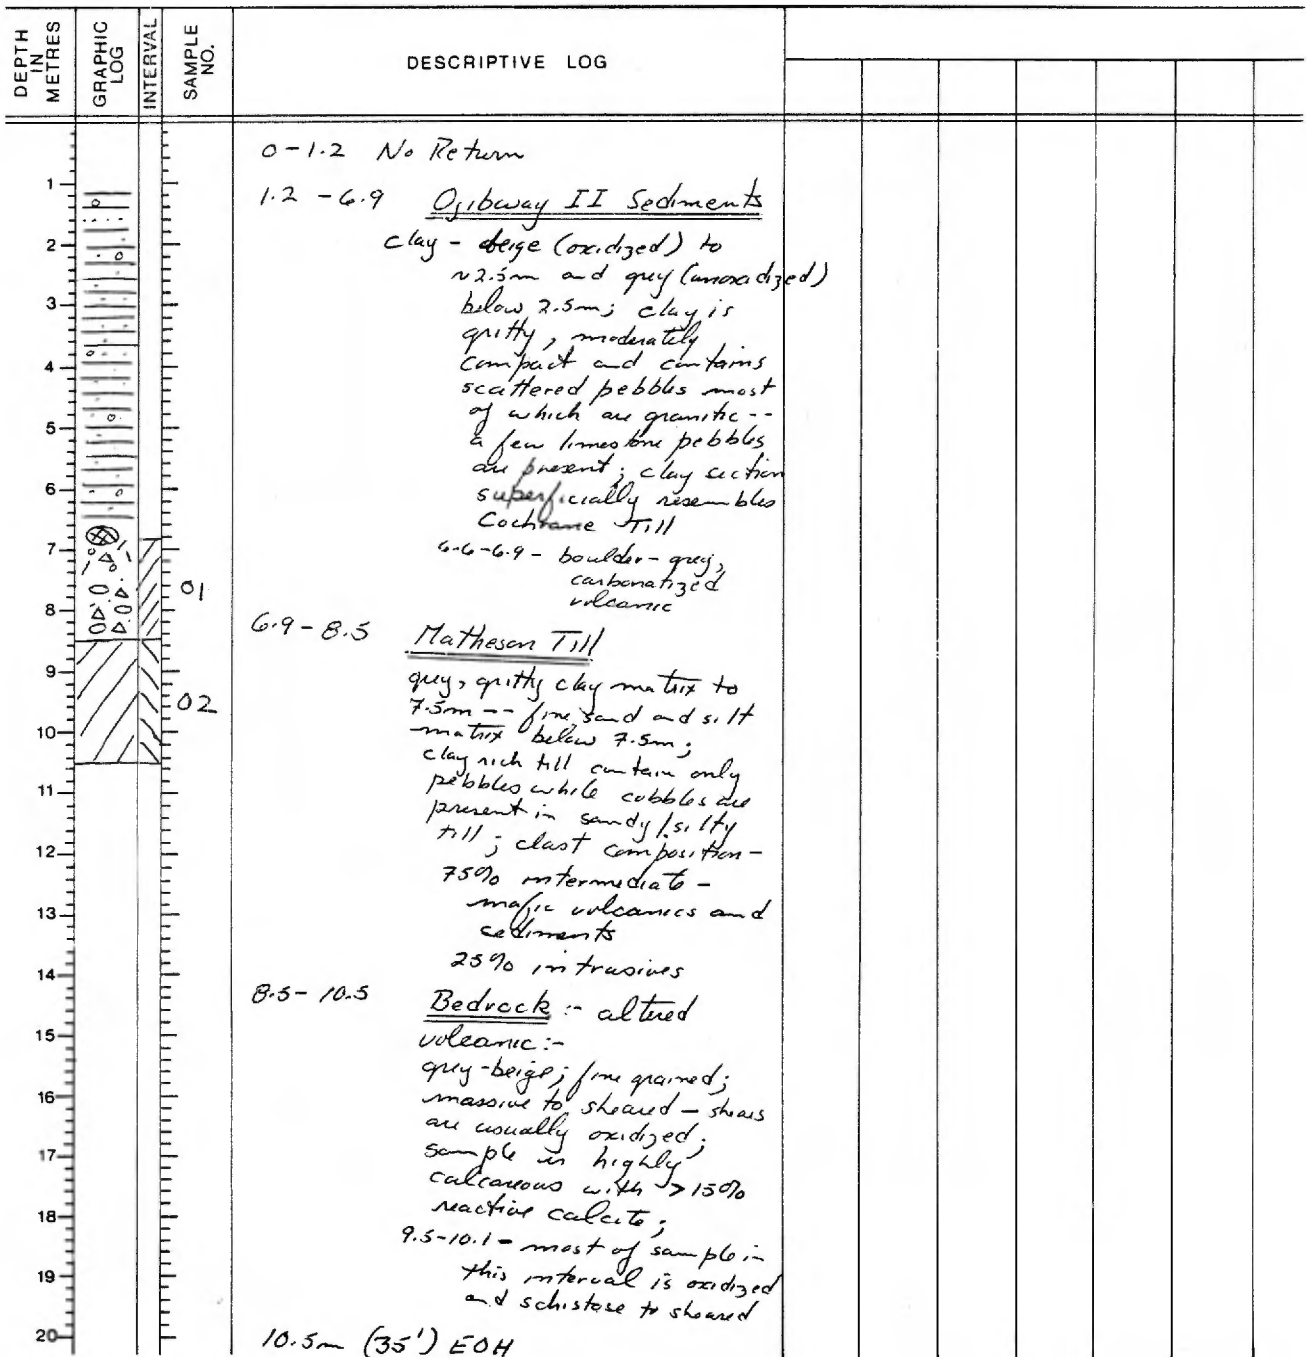 DEPTH IN METRES
GRAPHIC LOG
INTERVAL
SAMPLE NO.
DESCRIPTIVE LOG
0-1.2 No Return
1.2-6.9 Ojibway II Sediments
clay - beige (oxidized) to
~2.5m and grey (unoxidized)
below 2.5m; clay is
gritty, moderately
compact and contains
scattered pebbles most
of which are granitic --
a few limestone pebbles
are present; clay section
superficially resembles
Cochrane Till
6.6-6.9 - boulder - grey,
carbonatized
volcanic
6.9-8.5 Matheson Till
grey, gritty clay matrix to
7.5m -- fine sand and silt
matrix below 7.5m;
clay rich till contain only
pebbles while cobbles are
present in sandy/silty
till; clast composition -
75% intermediate -
mafic volcanics and
sediments
25% intrusives
8.5-10.5 Bedrock :- altered
volcanic :-
grey-beige; fine grained;
massive to sheared - shears
are usually oxidized;
sample is highly
calcareous with >15%
reactive calcite;
9.5-10.1 - most of sample in
this interval is oxidized
and schistose to sheared
10.5m (35') EOH
1
2
3
4
5
6
7
8
9
10
11
12
13
14
15
16
17
18
19
20
01
02